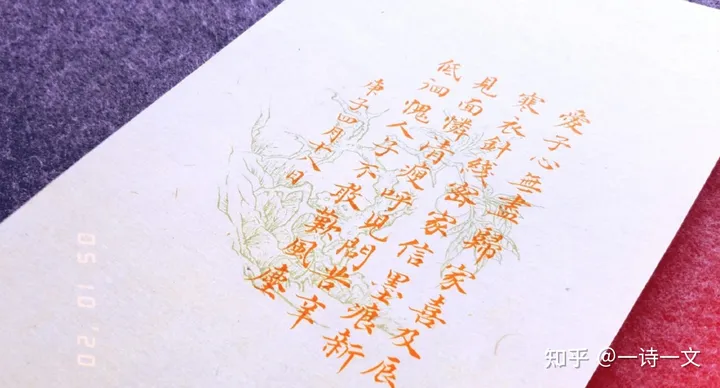 愛子心無盡歸家喜及辰
寒衣針線密家信墨痕新
見面憐清瘦呼兒問苦辛
低徊愧人子不敢歎風塵
庚子四月十八日
02.01.50
知乎 @一诗一文